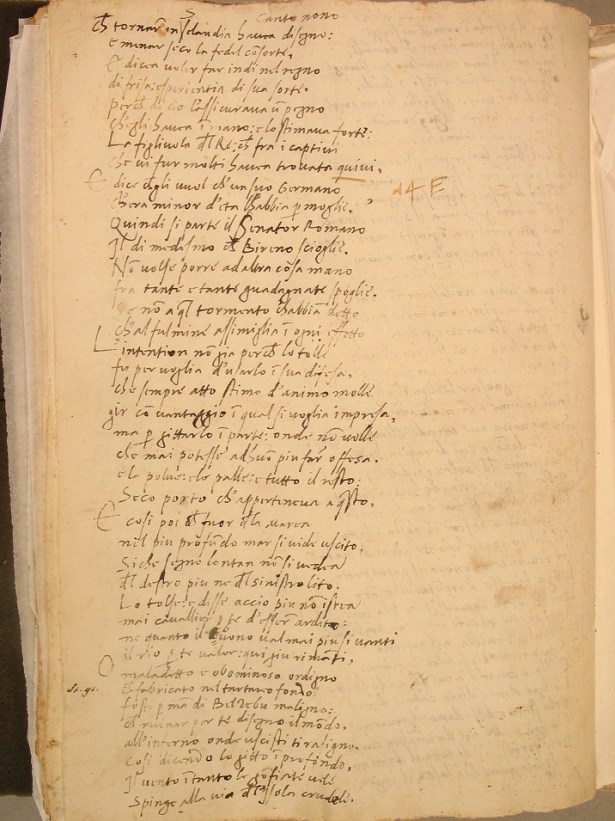 Canto nono
ch̃ tornar in Selandia havea disegno:
e menar seco la fedel cōsorte,
E dicea voler far indi nel regno
di frisa: esperientia di sua sorte.
perch̃ di cio l'assicurava ũ pegno
ch'egli havea ĩ mano: e lo stimava forte:
La figliuola d̃l Re: ch̃ fra i captivi
che vi fur molti havea trovata quivi.
E dice ch'egli vuol ch'un suo Germano
ch'era minor d'eta l'habbia p̱ moglie.
Quindi si parte il Senator Romano
Il di medesmo ch̃ Bireno scioglie.
Nō volse porre ad altra cosa mano
fra tante e tante guadagnate spoglie.
se non a q̃l tormento c'habbiā detto
ch'al fulmine assimiglia ĩ ogni effetto
L'intention nō gia perch̃ lo tolle
fu per voglia d'usarlo ĩ sua difesa.
che sempre atto stimo d'animo molle
gir cō vantaggio ĩ qual si voglia impresa,
ma p̱ gittarlo ĩ parte: onde nō volle
che mai potesse ad huō piu far offesa.
e la polve: e le palle: e tutto il resto:
Seco porto ch'apperteneva a q̃sto.
E cosi poi ch̃ fuor d̃la marea
nel piu profōdo mar si vide uscito.
Si che segno lontan nō si vedea
d̃l destro piu ne d̃l sinistro lito.
Lo tolse: e disse accio piu nō istea
mai cavallier p̱ te d'esser ardito:
ne quanto il buono val mai piu si vanti
il rio p̱ te valer: qui giu rimāti.
O maladetto e abominoso ordigno
ch̃ fabricato nel tartareo fondo
foste p̱ mā di Belzebu maligno:
ch̃ ruinar per te disegno il mōdo.
all'inferno onde uscisti ti rasigno.
Cosi dicendo lo gitto ĩ profondo.
Il vento ĩtanto le gōfiate vele
Spinge alla via d̃l'Isola crudele.